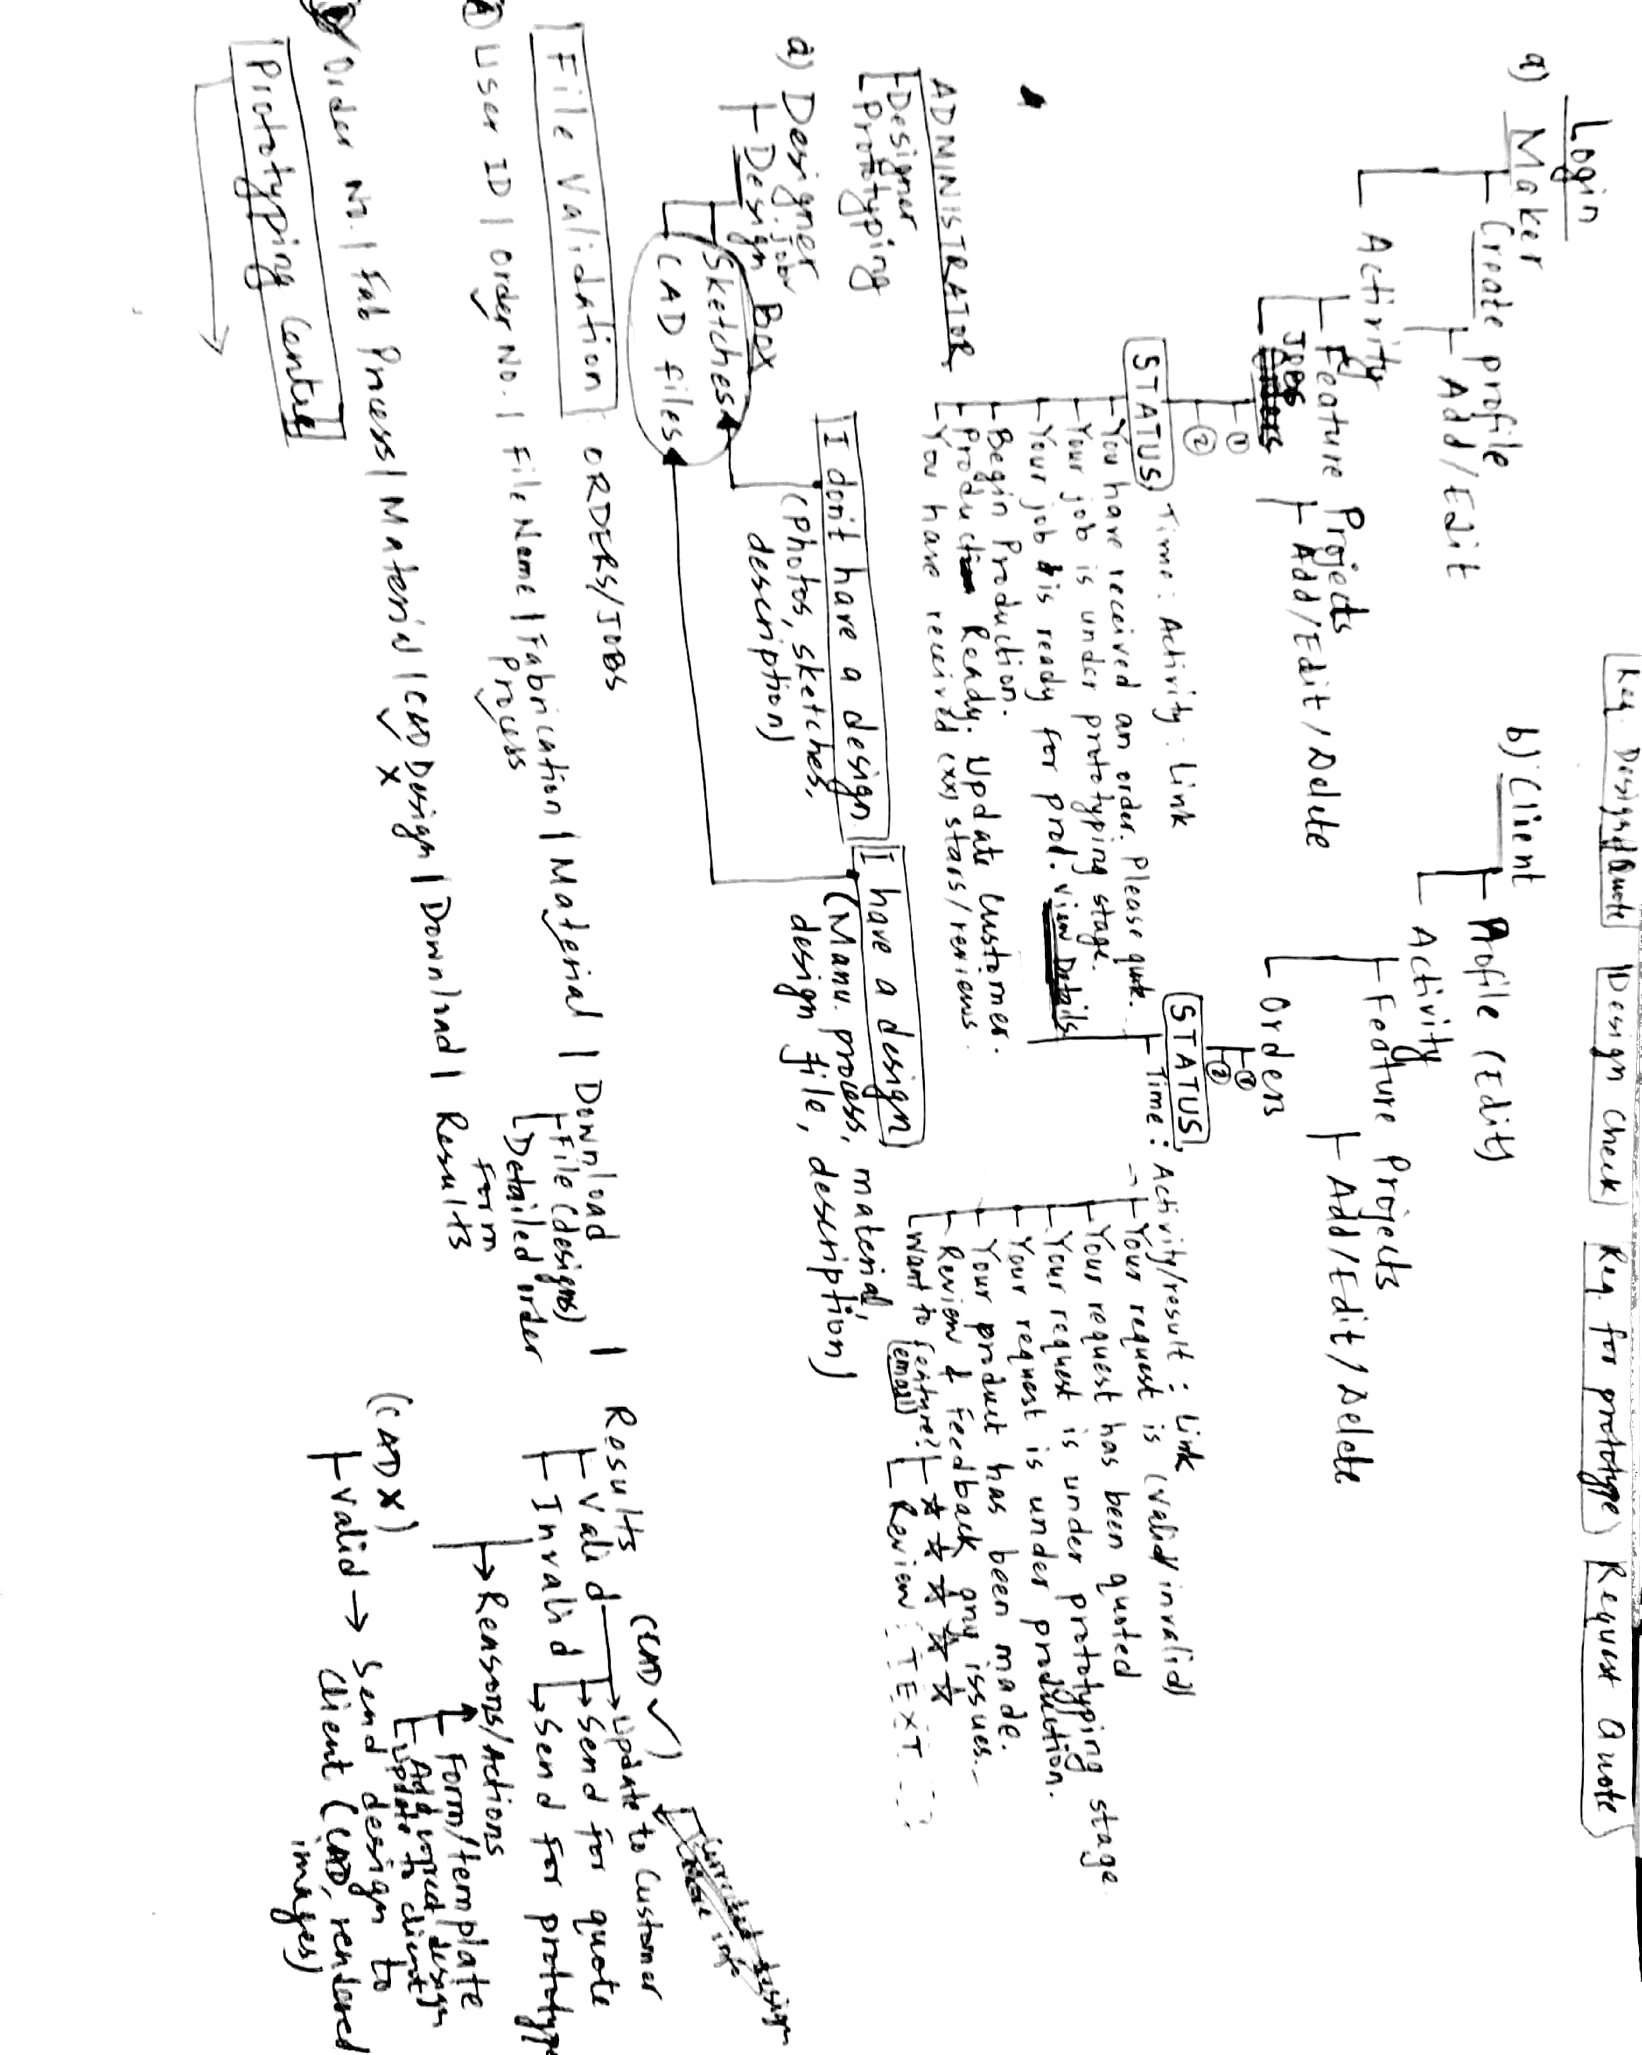 Req. Design & Quote
Design Check
Req. for prototype
Request Quote
Login
a) Maker
Create profile
Add/Edit
Activity
Feature Projects
Add/Edit/Delete
JOBS
Orders
①
②
STATUS Time: Activity: Link
You have received an order. Please quote.
Your job is under prototyping stage.
Your job is ready for prod. View Details
Begin Production.
Production Ready. Update Customer.
You have received (xx) stars/reviews.
b) Client
Profile (Edit)
Activity
Feature Projects
Add/Edit/Delete
Orders
①
②
STATUS
Time: Activity/result: Link
Your request is (valid/invalid)
Your request has been quoted
Your request is under prototyping stage
Your request is under production.
Your product has been made.
Review & Feedback any issues.
Want to feature?
(email)
☆ ☆ ☆ ☆ ☆
Review TEXT
ADMINISTRATOR
Designer
Prototyping
I don't have a design
(Photos, sketches,
description)
I have a design
(Manu. process, material,
design file, description)
a) Designer
job
Design Box
Sketches
CAD files
File Validation ORDERS/JOBS
User ID | Order No. | File Name | Fabrication Process | Material | Download | Results
File (designs)
Detailed order
form
(CAD ✓)
Corrected design
More info
Valid
Update to Customer
Send for quote
Send for prototype
Invalid
Reasons/Actions
Form/template
Add correct design
Update to client
Order No. | Fab Process | Material | CAD Design | Download | Results
✓ X
(CAD X)
Valid → Send design to
Client (CAD, rendered
images)
Prototyping Centre